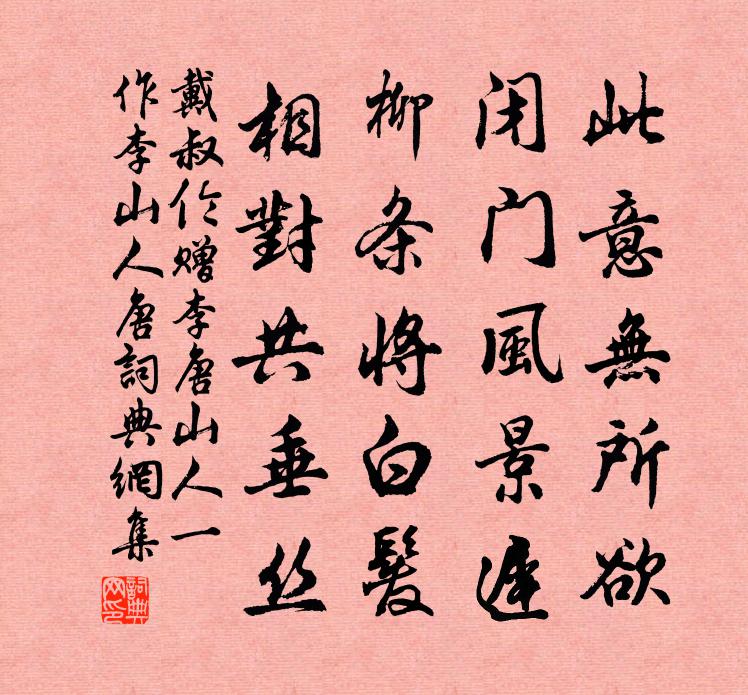 此意無所欲
闭门風景遲
柳条將白髮
相對共垂丝
戴叔伦赠李唐山人一
作李山人唐詞典網集
詞典網印